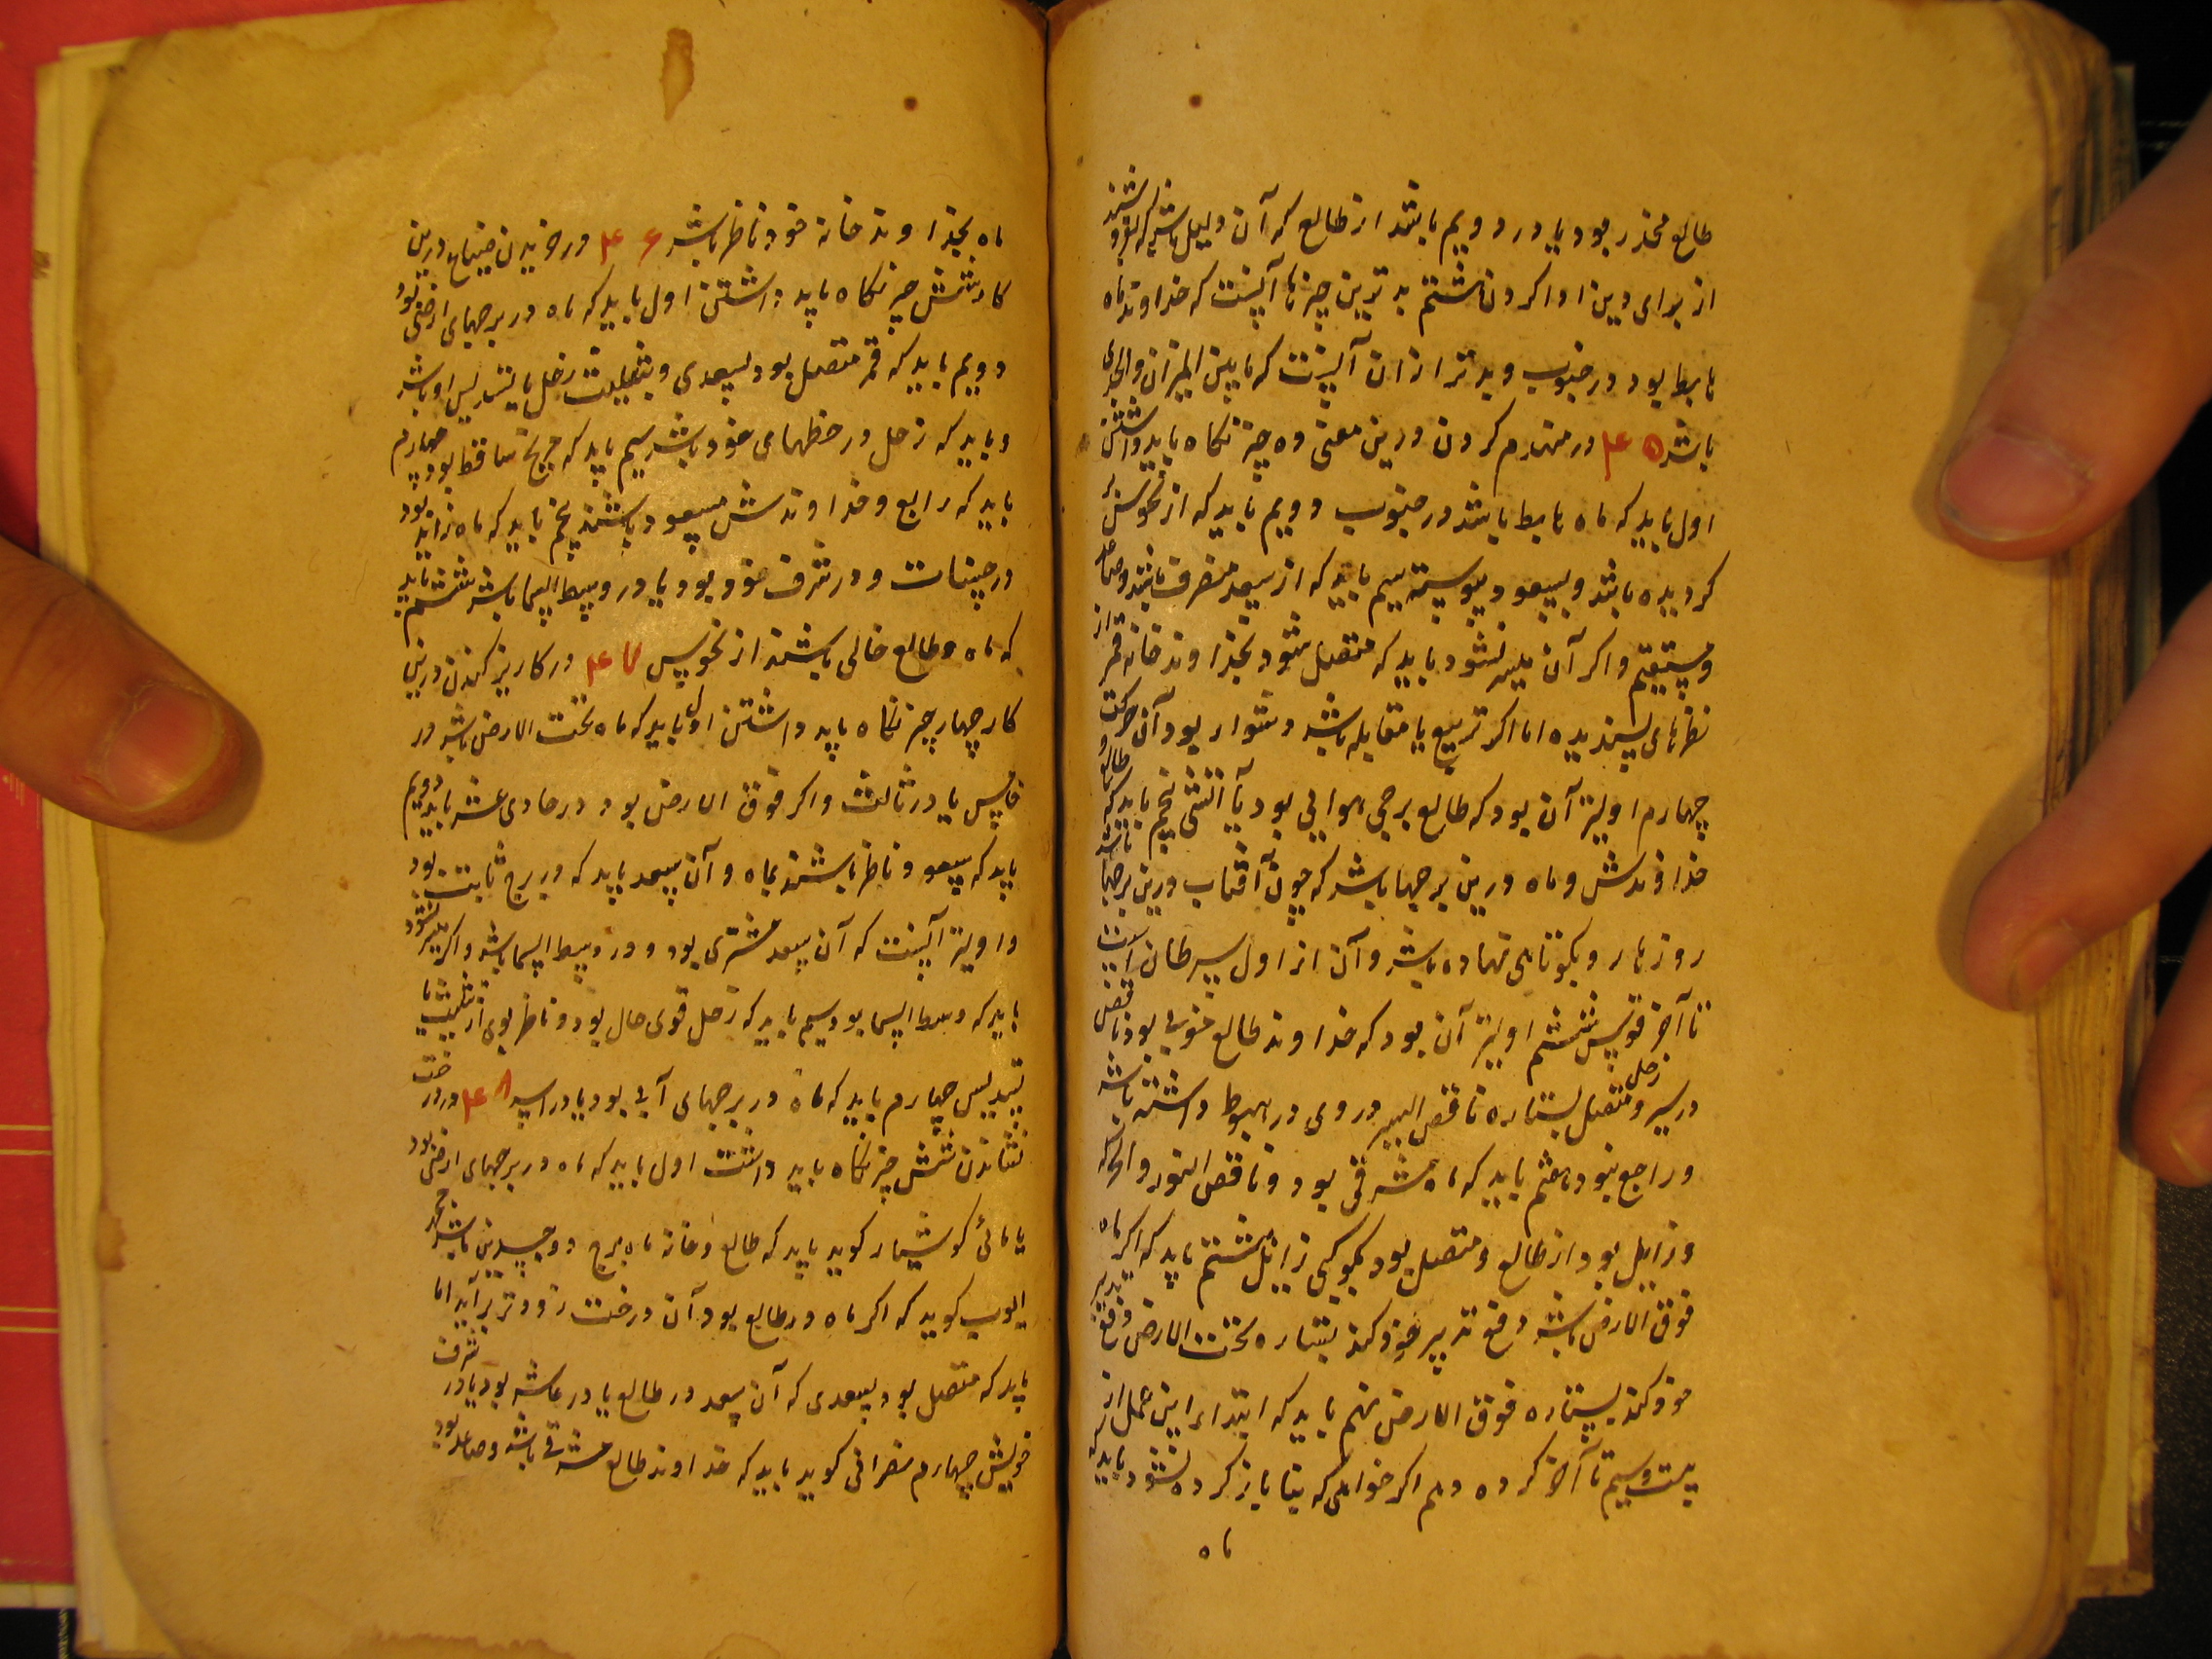 طالع محذر بود یا در دویم باشد از طالع که آن دلیل باشد که بفروشند
از برای دین ادا کردن هشتم بدترین چیزها آنست که خداوند ماه
هابط بود در جنوب و بدتر ازان آنست که مابین المیزان والجدی
باشد ۴۵ در منهدم کردن درین معنی ده چیز نگاه باید داشتن
اول باید که ماه هابط باشد در جنوب دویم باید که از نحوس بر
کردیده باشد و بسعود پیوسته سیم باید که از سعد منصرف باشد و صاعد
و مستقیم و اکر آن میسر نشود باید که متصل شود بخداوند خانه قمر از
نظرهای پسندیده اما اکر تربیع یا مقابله باشد دشوار بود آن حرکت
چهارم اولیتر آن بود که طالع برجی هوایی بود یا آتشی پنجم باید که طالع و
خداوندش و ماه درین برجها باشد که چون آفتاب درین برجها باشد
روزها رو بکوتاهی نهاده باشد و آن از اول سرطان است
تا آخر قوس ششم اولیتر آن بود که خداوند طالع جنوبی بود ناقص
در سیر و متصل بستاره ناقص السیر زحل و روی در هبوط داشته باشد
و راجع نبود هفتم باید که ماه مشرقی بود و ناقص النور و آنکه
و زایل بود از طالع و متصل بود بکوکبی زایل هشتم باید که اکر ماه
فوق الارض باشد دفع تدبیر خود کند بستاره تحت الارض و دفع تدبیر
خود کند بستاره فوق الارض نهم باید که ابتداء این عمل از
بیست و سیم تا آخر کرده دهم اکر خواهی که بنا باز کرده نشود باید که
ماه
ماه بخداوند خانه خود ناظر باشد ۴۶ در خریدن ضیاع درین
کار شش چیز نگاه باید داشتن اول باید که ماه در برجهای ارضی بود
دویم باید که قمر متصل بود بسعدی و بتثلیث زحل یا تسدیس او باشد
و باید که زحل در حظهای خود باشد سیم باید که مریخ ساقط بود چهارم
باید که رابع و خداوندش مسعود باشند پنجم باید که ماه زاید بود
در حسنات و در شرف خود بود یا در وسط السما باشد ششم باید
که ماه و طالع خالی باشند از نحوس ۴۷ در کاریز کندن درین
کار چهار چیز نگاه باید داشتن اول باید که ماه تحت الارض باشد در
خامس یا در ثالث و اکر فوق الارض بود در حادی عشر باید دویم
باید که سعود ناظر باشند بماه و آن سعد باید که در برج ثابت بود
و اولیتر آنست که آن سعد مشتری بود و در وسط السما باشد و اکر میسر نشود
باید که وسط السما بود سیم باید که زحل قوی حال بود و ناظر بوی از تثلیث یا
تسدیس چهارم باید که ماه در برجهای آبی بود یا در اسد ۴۸ در درخت
نشاندن شش چیز نگاه باید داشت اول باید که ماه در برجهای ارضی بود
یا مائی کوشیار کوید باید که طالع و خانه ماه برج ذوجسدین باشد
ایوب کوید که اکر ماه در طالع بود آن درخت زودتر برآید اما
باید که متصل بود بسعدی که آن سعد در طالع یا در عاشر بود یا در شرف
خویش چهارم نصرانی کوید باید که خداوند طالع مشرقی باشد و صاعد بود